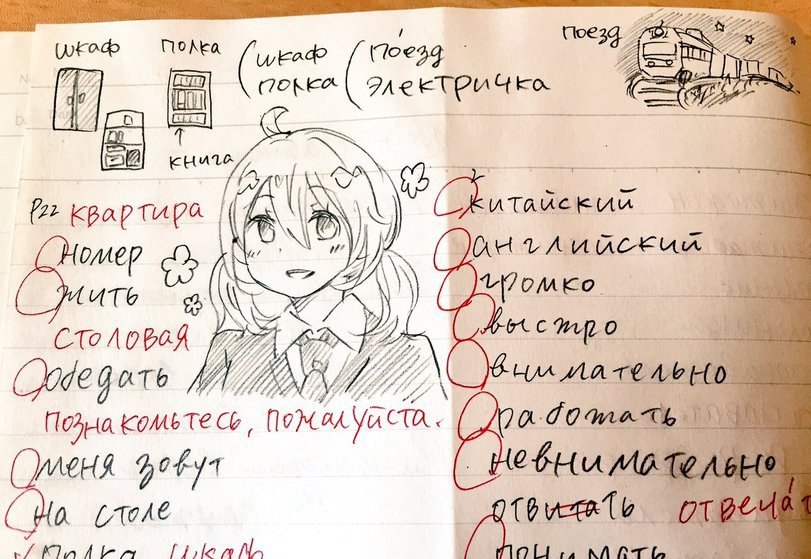 шкаф полка
(шкаф
полка
(по́езд
электричка
поезд
книга
P22 квартира
номер
жить
столовая
обедать
познакомьтесь, пожалуйста.
меня зовут
на столе
полка шкаль
китайский
английский
громко
выстро
внимательно
работать
невнимательно
отвитать отвеча́т
понимать